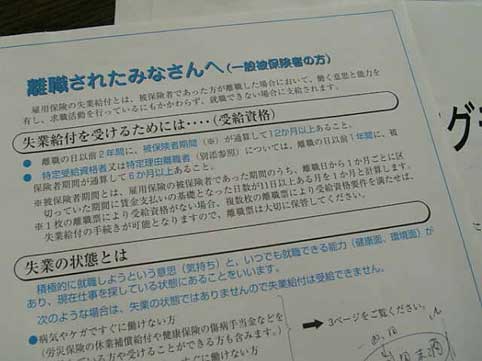 離職されたみなさんへ(一般被保険者の方)
雇用保険の失業給付とは、被保険者であった方が離職した場合において、働く意思と能力を
有し、求職活動を行っているにもかかわらず、就職できない場合に支給されます。
失業給付を受けるためには‥‥(受給資格)
● 離職の日以前2年間に、被保険者期間(※)が通算して12か月以上あること。
● 特定受給資格者又は特定理由離職者(別途参照)については、離職の日以前1年間に、被
保険者期間が通算して6か月以上あること。
※被保険者期間とは、雇用保険の被保険者であった期間のうち、離職日から1か月ごとに区
切っていた期間に賃金支払いの基礎となった日数が11日以上ある月を1か月と計算します。
※1枚の離職票により受給資格がない場合、複数枚の離職票により受給資格要件を満たせば、
失業給付の手続きが可能となりますので、離職票は大切に保管してください。
失業の状態とは
積極的に就職しようという意思(気持ち)と、いつでも就職できる能力(健康面、環境面)が
あり、現在仕事を探している状態にあることをいいます。
次のような場合は、失業の状態ではありませんので失業給付は受給できません。
●病気やケガですぐに働けない方
(労災保険の休業補償給付や健康保険の傷病手当金などを
ている方や受けることができる方も含みます。)
すぐに働けない方
3ページをご覧ください。
グ